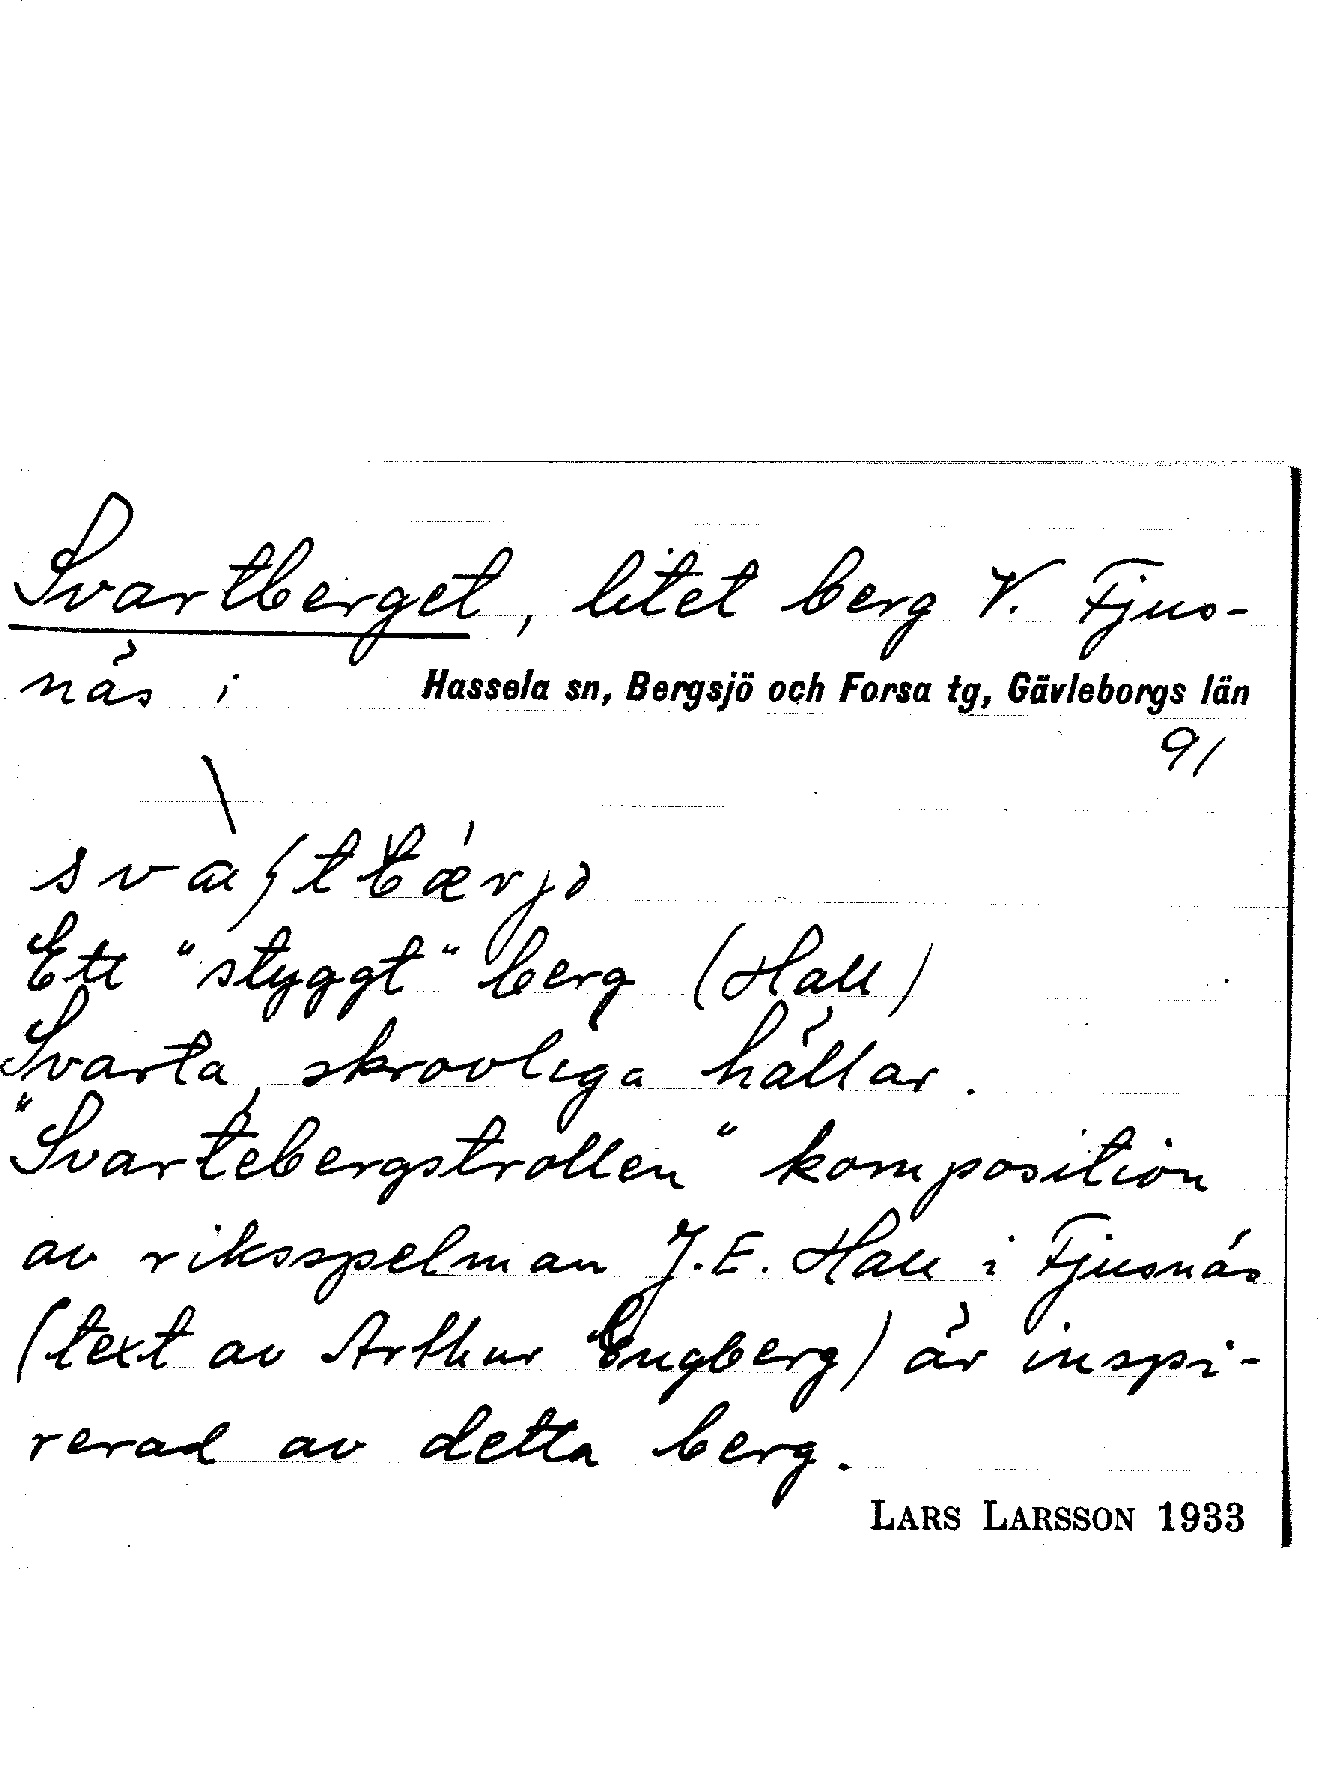 Svartberget, litet berg V. Fjus-
näs i Hassela sn, Bergsjö och Forsa tg, Gävleborgs län
91
Ett "styggt" berg (Hall)
Svarta, skrovliga hällar.
"Svartebergstrollen" komposition
av riksspelman J.E. Hall i Fjusnäs
(text av Arthur Engberg) är inspi-
rerad av detta berg.
LARS LARSSON 1933